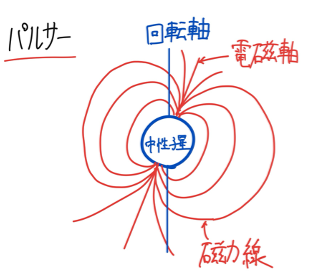 パルサー
回転軸
電磁軸
中性運
磁力線